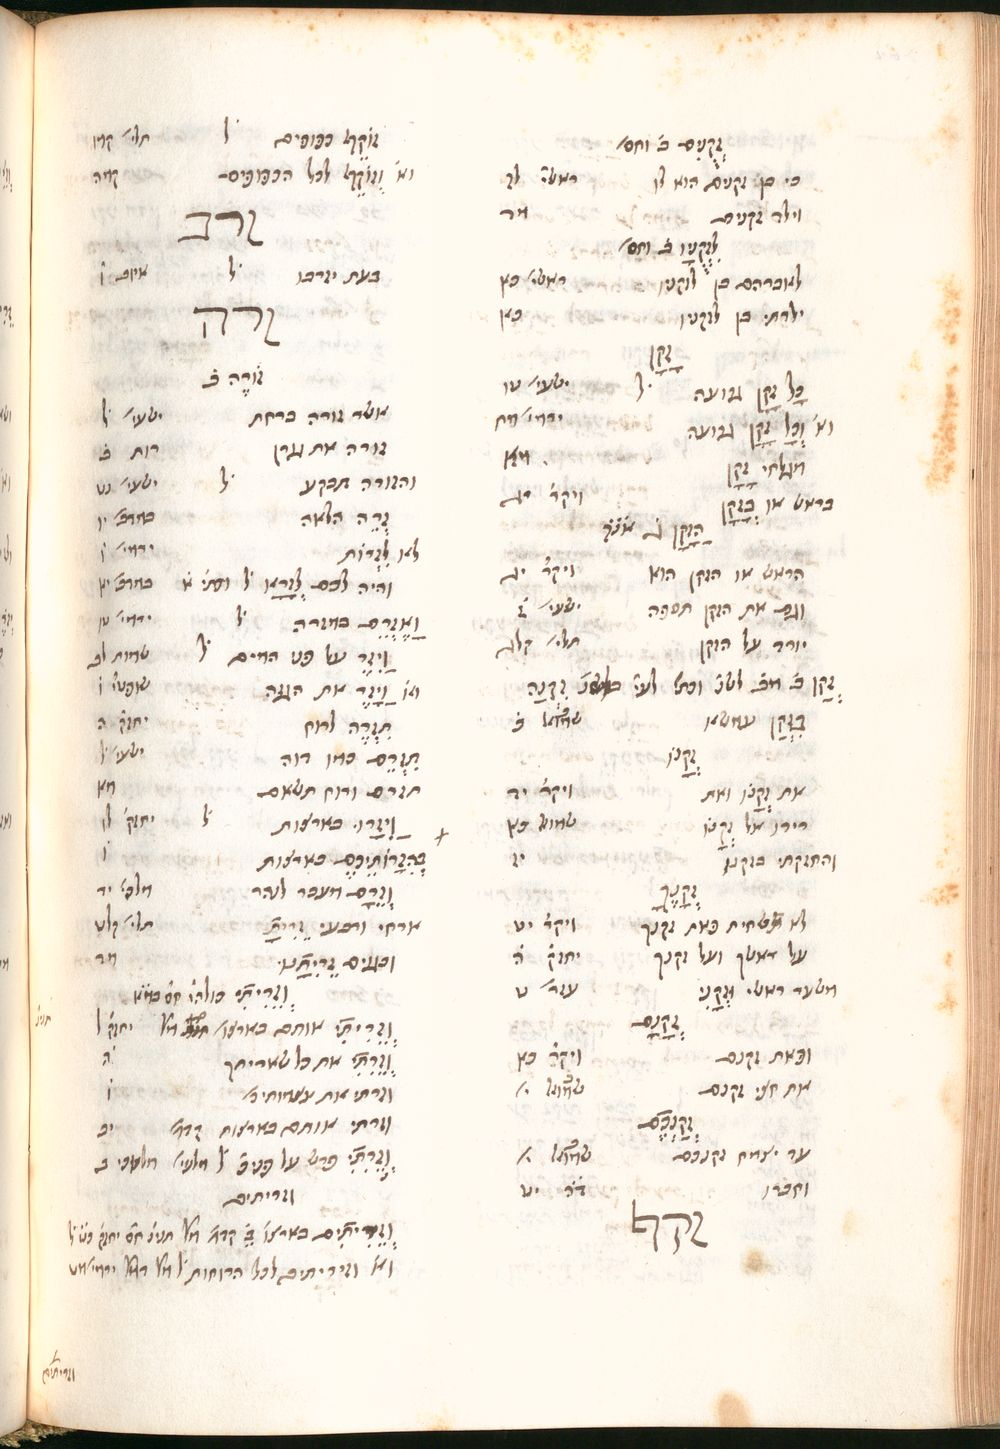 זְקֻנִים ב֗ וחס׳
כי בן זקנים הוא לו ראשי׳ לז
וילד זקנים מד
לִזְקֻנָיו ב֗ וחס׳
לאברהם בן לזקניו ראשי׳ כא
ילדתי בן לזקניו כאן
זָקָן
כָּל זָקָן גרועה ל׳ ישעי׳ טו
וא׳ וְכָל זָקָן גרועה ירמי׳ מח
מגלחי זָקָן מא
בראש או בְזָקָן ויקר׳ יג
הַזָּקָן ג֗
הראש או הזקן הוא ויקר׳ יג
וגם את הזקן תספה ישעי׳ ז֗
יורד על הזקן תלי׳ קלג
בִּזְקַן עמשא שמואל ב֗
זְקָנוֹ
את זְקָנוֹ ואת ויקר׳ יד
רירו אל זְקָנוֹ שמוא׳ כא
והחזקתי בזקנו יז
זְקָנֶךָ
לא תשחית פאת זקנך ויקר׳ יט
על ראשך ועל זקנך יחזק׳ ה֗
משער ראשי וּזְקָנִי עזר׳ ט
זְקָנָם
ופאת זקנם ויקר׳ כא
את חצי זקנם שמואל י׳
זְקַנְכֶם
עד יצמח זקנכם שמואל י׳
וחברו דה׳ יט
זקף
זוֹקֵף כפופים ל׳ תלי׳ קמו
וא׳ וְזוֹקֵף לכל הכפופים קמה
זרב
בעת יזרבו ל׳ איוב ו֗
זרה
זוֹרֶה ב֗
אשר זורה ברחת ישעי׳ ל
זורה את גרן רות ב֗
והזורה תבקע ל׳ ישעי׳ נט
זְרֵה הלאה במדב׳ יז
לא לִזְרוֹת ירמי׳ ו֗
והיה לכם לְזָרָא ל׳ במדב׳ יא
וָאֶזְרֵם במזרה ל׳ ירמי׳ טו
וַיִּזֶר על פני המים ל׳ שמות לב
וא׳ וַיָּזֶר את הגזה שופטי׳ ו֗
תִּזְרֶה לרוח יחזק׳ ה
תִּזְרֵם כמו דוה ישעי׳ ל
תזרם ורוח תשאם מא
וַיִּזָּרוּ בארצות ל׳ יחזק׳ לו
בְּהִזָּרוֹתֵיכֶם בארצות ו֗
וְזֵרָם מעבר לנהר מלכי׳ יד
ארחי ורבעי זֵרִיתָ תלי׳ קלט
ובגוים זֵרִיתָנוּ מד
וְזֵרִיתִי
וְזֵרִיתִי אותם בארצו׳ יחזק׳ ל
וְזֵרִתִי את כל שאריתך ה
וזרתי את עצמותיכ׳ ו֗
וזרתי אותם בארצות יב
וְזֵרִתִי פרש על פניכ׳ ל׳ מלאכי ב
וזריתים
וא׳ וזיריתים לכל הרוחות ל׳ ירמי׳ מט
וזריתים